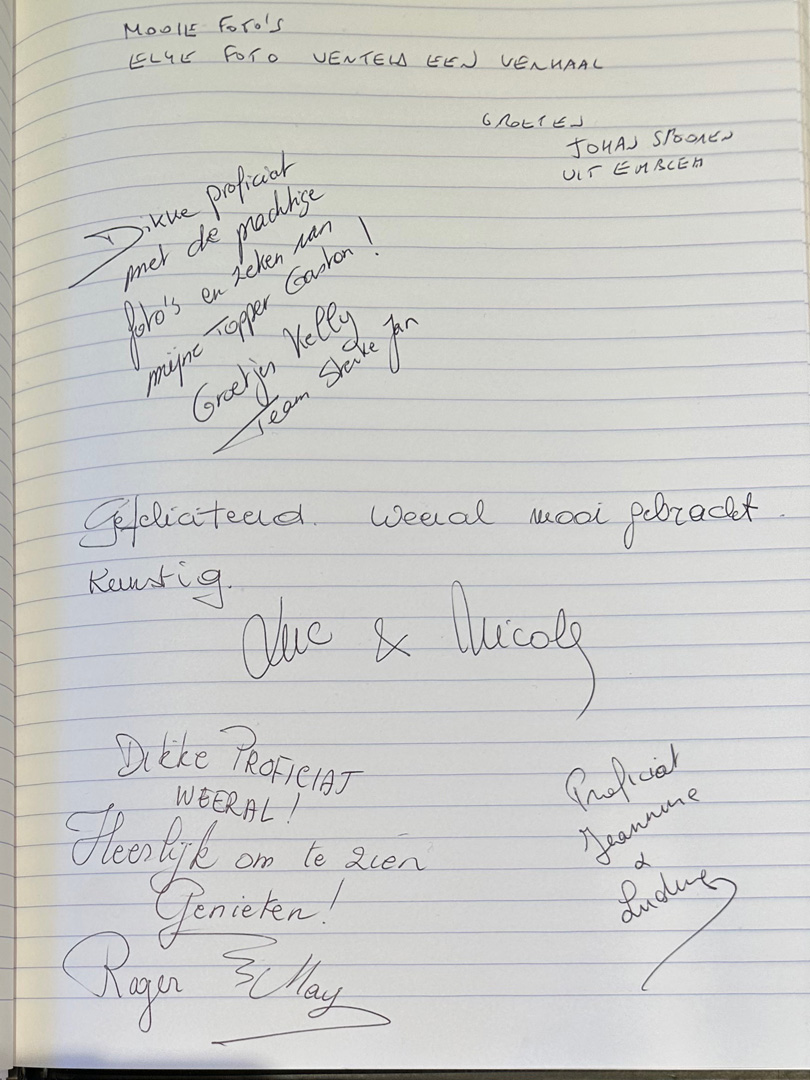 MOOIE FOTO'S
ELKE FOTO VERTELD EEN VERHAAL
GROETEN
JOHAN SPOOREN
UIT EMBLEM
Dikke proficiat
met de prachtige
foto's en zeker van
mijne Topper Gaston!
Groetjes Kelly
Team Sterke Jan
Gefeliciteerd. Weeral mooi gebracht.
Kunstig.
Luc & Nicole
Dikke PROFICIAT
WEERAL!
Heerlijk om te zien
Genieten!
Roger & May
Proficiat
Jeannine
&
Ludwig